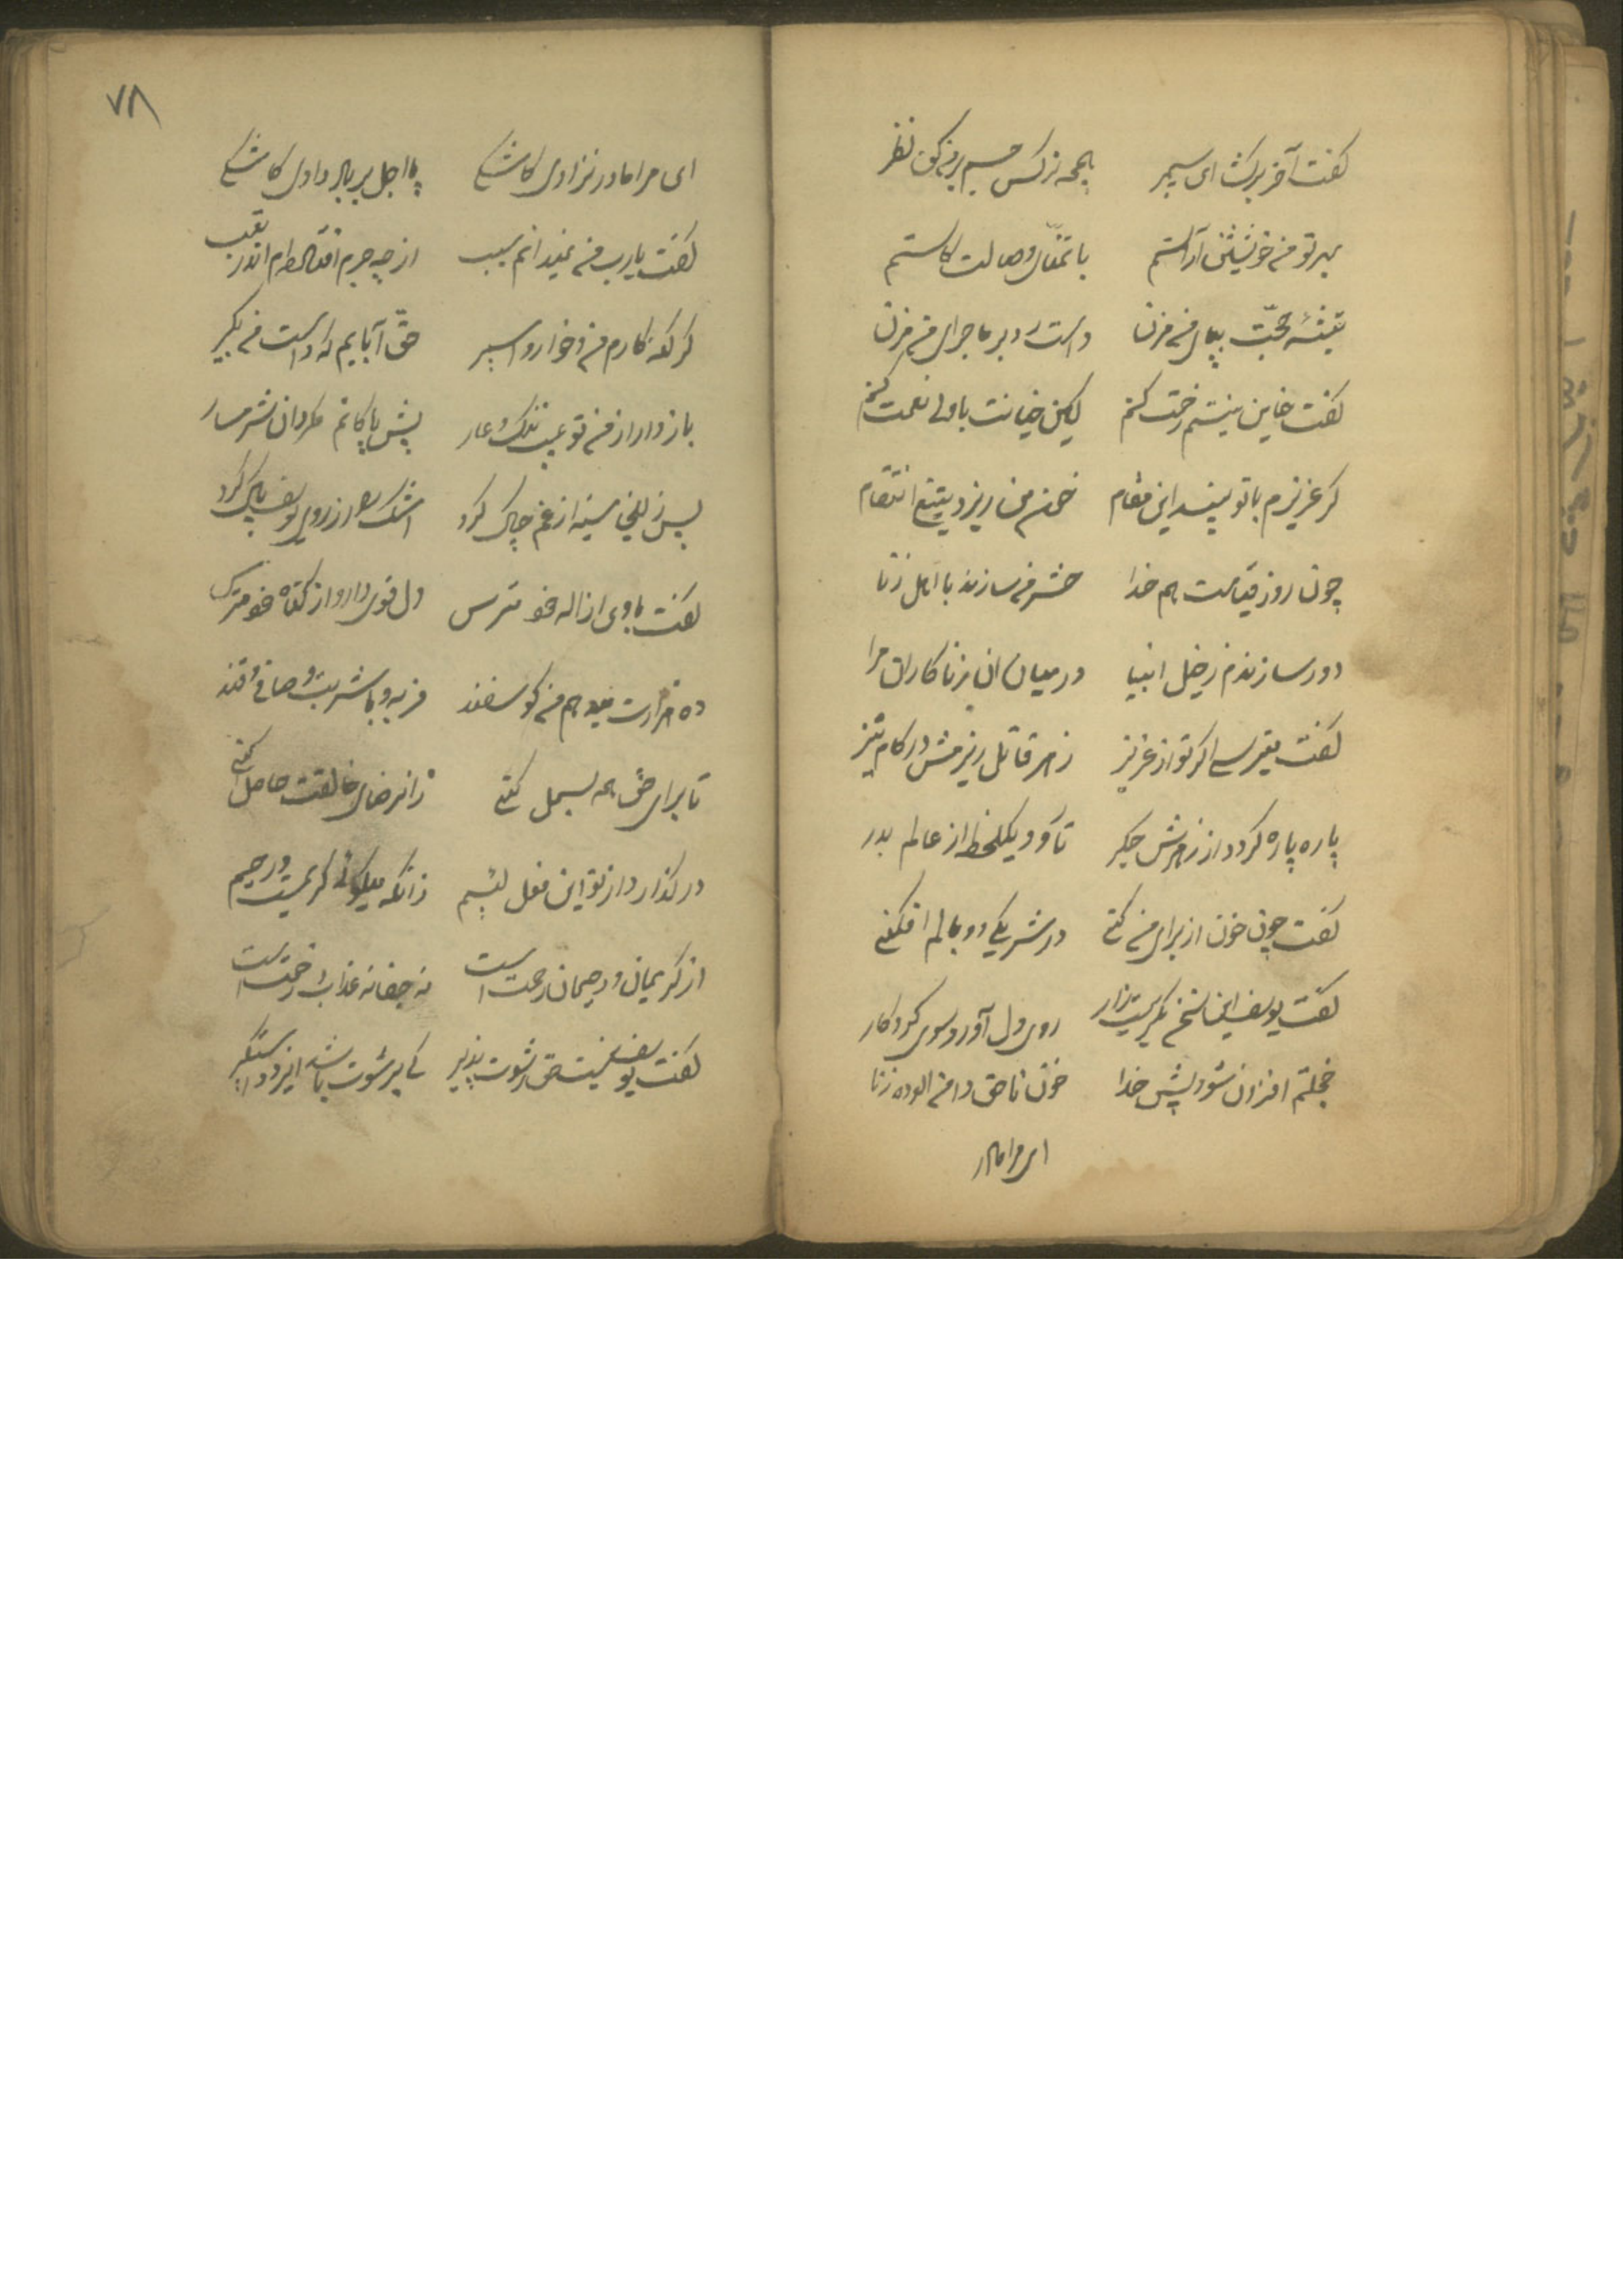 گفت آخر سرکش ای سیمبر همچو نرگس چشم بر من کن نظر
بهر تو من خویشتن آراستم با تمنای وصالت کاستم
تیشهٔ محبت بپای من مزن دست رد بر ماجرای من مزن
گفت خاین نیستم رحمت کنم لیکن خیانت با ولی نعمت کنم
گر عزیزم با تو بیند این مقام خون من ریزد بتیغ انتقام
چون روز قیامت هم خدا حشر من سازند با اهل زنا
دور سازندم ز خیل انبیا در میان آن زناکاران مرا
گفت میترسی اگر تو از عزیز زهر قاتل ریزمش در کام تیز
پاره پاره گردد از زهرش جگر تا رود یکلحظه از عالم بدر
گفت چون خون از برای من کنی در شریکی دو عالم افکنی
گفت یوسف این سخن بگریست زار روی دل آورد سوی کردگار
خجلتم افزون شود پیش خدا خون ناحق دامن الوده زنا
ای مرا مادر
۷۸
ای مرا مادر نزادی کاشکی یا اجل بر باد دادی کاشکی
گفت یارب من نمیدانم سبب از چه جرم افتاده‌ام اندر تعب
گر گنه‌کارم من و خوار و اسیر حق آبایم که دست من بگیر
باز دار از من تو عیب ننگ و عار پیش پاکانم مگردان شرمسار
پس زلیخا سینه از غم چاک کرد اشک را از روی یوسف پاک کرد
گفت با وی از اله خود مترس دل قوی دار و از گناه خود مترس
ده هزارت میدهم من گوسفند فربه و با شربت و صافی و قند
تا برای حق همه بسمل کنی زان رضای خالقت حاصل کنی
در گذارد از تو این فعل لئیم زانکه میگوئی کریمست و رحیم
از کریمان و رحیمان رحمت است نه جفا نه عذاب زحمت است
گفت یوسف نیست حق رشوت پذیر کی برشوت باشد ایزد دستگیر